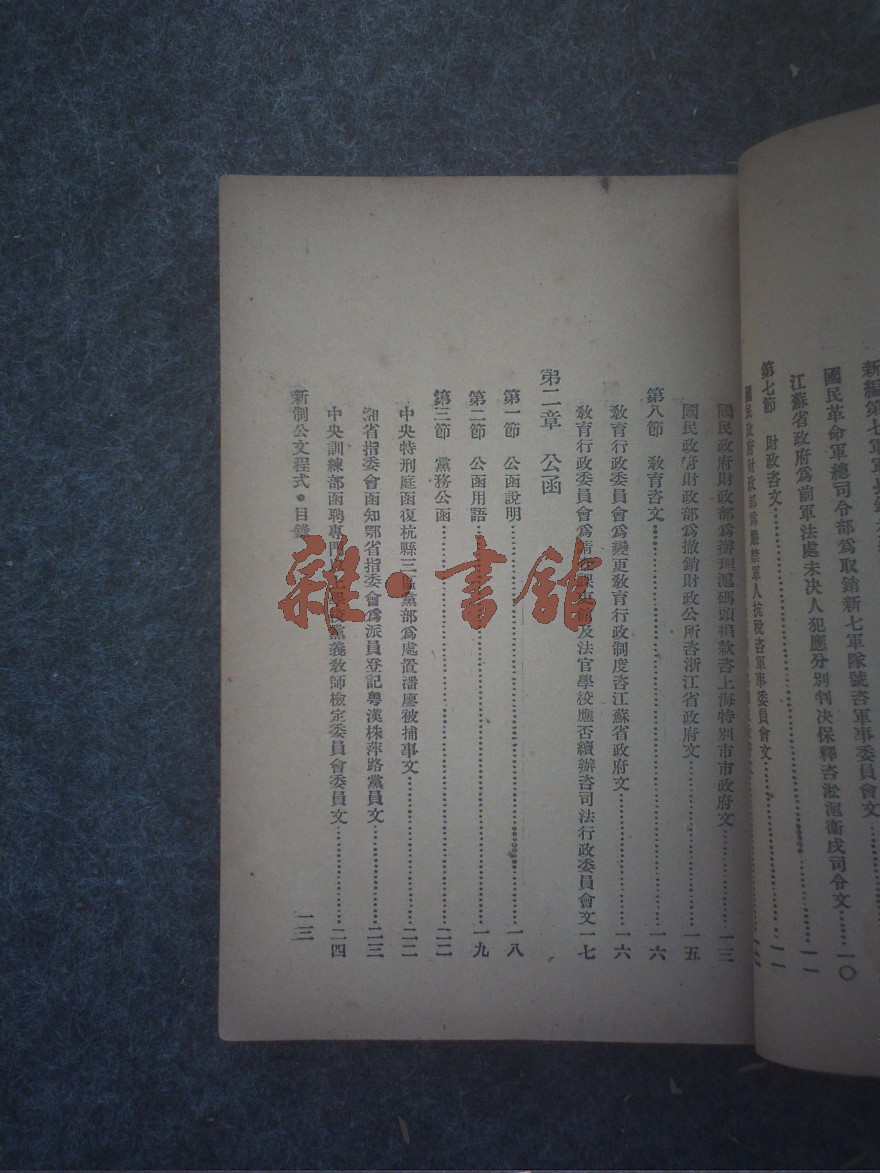 國民革命軍總司令部爲取銷新七軍隊號咨軍事委員會文……一〇
江蘇省政府爲前軍法處未決人犯應分別判決保釋咨淞滬衞戍司令文……一一
第七節 財政咨文……一一
國民政府財政部爲嚴禁軍人抗稅咨軍事委員會文
國民政府財政部爲辦理滬碼頭捐款咨上海特別市市政府文……一三
國民政府財政部爲撤銷財政公所咨浙江省政府文……一五
第八節 敎育咨文……一六
敎育行政委員會爲變更敎育行政制度咨江蘇省政府文……一六
敎育行政委員會爲 及法官學校應否續辦咨司法行政委員會文一七
第二章 公函
第一節 公函說明……一八
第二節 公函用語……一九
第三節 黨務公函……二二
中央特刑庭函復杭縣三區黨部爲處置潘廖被捕事文……二二
湘省指委會函知鄂省指委會爲派員登記粵漢株萍路黨員文……二三
中央訓練部函聘專門 黨義敎師檢定委員會委員文……二四
新制公文程式•目錄
一三
雜·書館